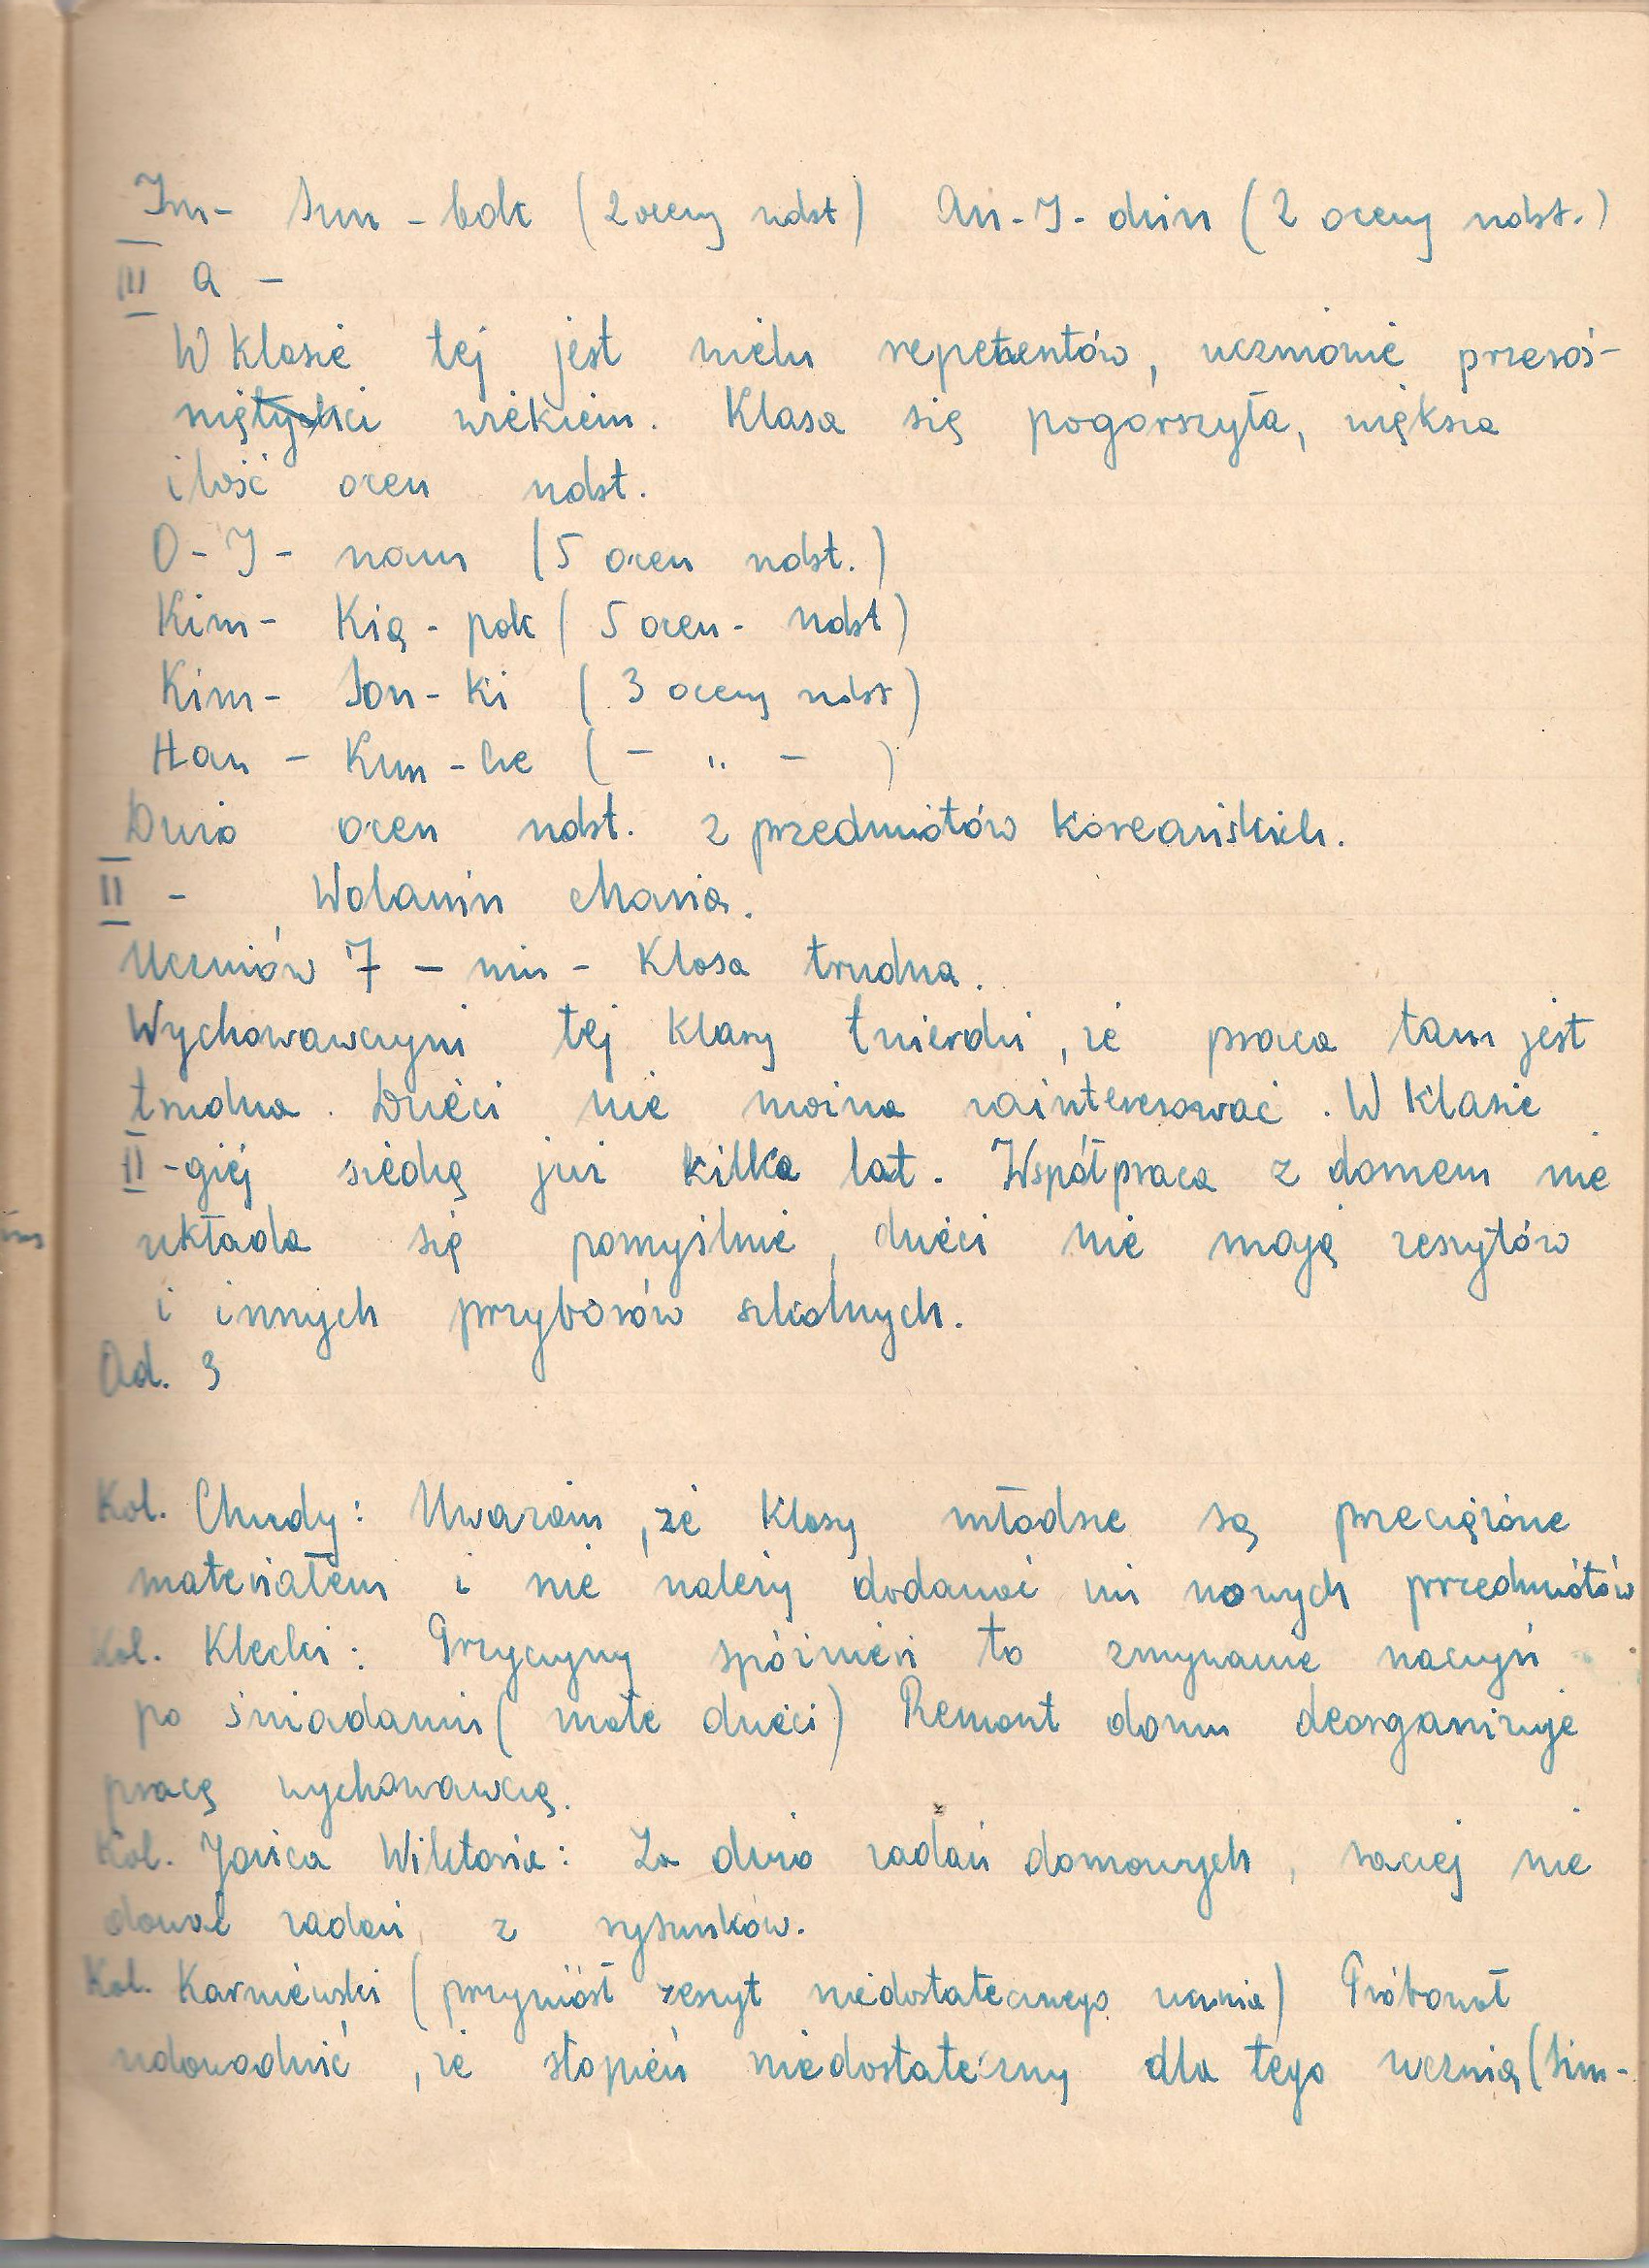 Im- Sun - bok (2 oceny ndst) An-I-dzin (2 oceny ndst.)
III a -
W klasie tej jest wielu repetentów, uczniowie przeroś-
nięci wiekiem. Klasa się pogorszyła, większa
ilość ocen ndst.
O - I - nam (5 ocen ndst.)
Kim - Kią - pok ( 5 ocen - ndst)
Kim - Son - ki ( 3 oceny ndst)
Han - Kum - he ( - „ - )
Dużo ocen ndst. z przedmiotów koreańskich.
II - Wolanin Maria.
Uczniów 7 - miu - klasa trudna.
Wychowawczyni tej klasy twierdzi, że praca tam jest
trudna. Dzieci nie można zainteresować. W klasie
II-giej siedzą już kilka lat. Współpraca z domem nie
układa się pomyślnie, dzieci nie mają zeszytów
i innych przyborów szkolnych.
Ad. 3
Kol. Chudy: Uważam, że klasy młodsze są przeciążone
materiałem i nie należy dodawać im nowych przedmiotów
Kol. Klecki: Przyczyny spóźnień to zmywanie naczyń
po śniadaniu (małe dzieci) Remont domu deorganizuje
pracę wychowawczą.
Kol. Jarica Wiktoria: Za dużo zadań domowych, raczej nie
dawać zadań z rysunków.
Kol. Karniewski (przyniósł zeszyt niedostatecznego ucznia) Próbował
udowodnić, że stopień niedostateczny dla tego ucznia (Sim-